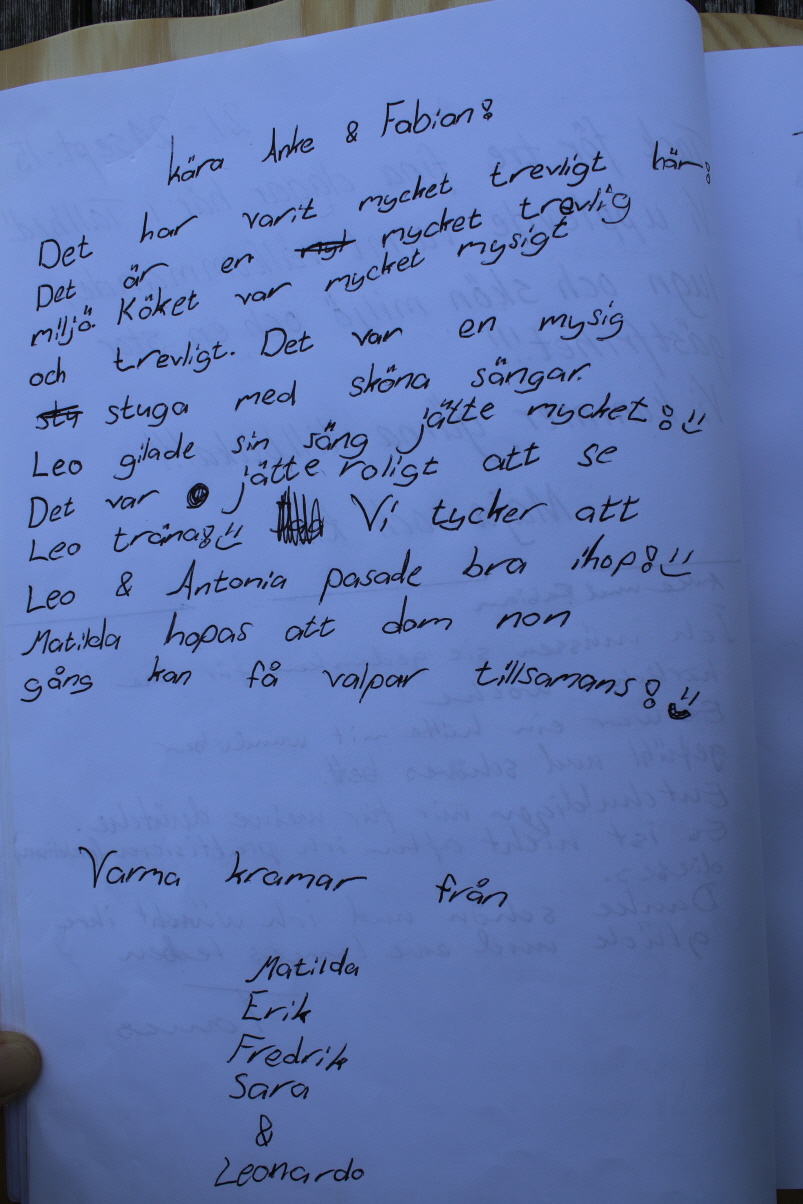 kära Anke & Fabian!
Det har varit mycket trevligt här!
Det är en mycket trevlig
miljö. Köket var mycket mysigt
och trevligt. Det var en mysig
stuga med sköna sängar.
Leo gilade sin säng jätte mycket! :)
Det var jätte roligt att se
Leo träna! :) Vi tycker att
Leo & Antonia pasade bra ihop! :)
Matilda hopas att dom non
gång kan få valpar tillsamans! :)
Varma kramar från
Matilda
Erik
Fredrik
Sara
&
Leonardo